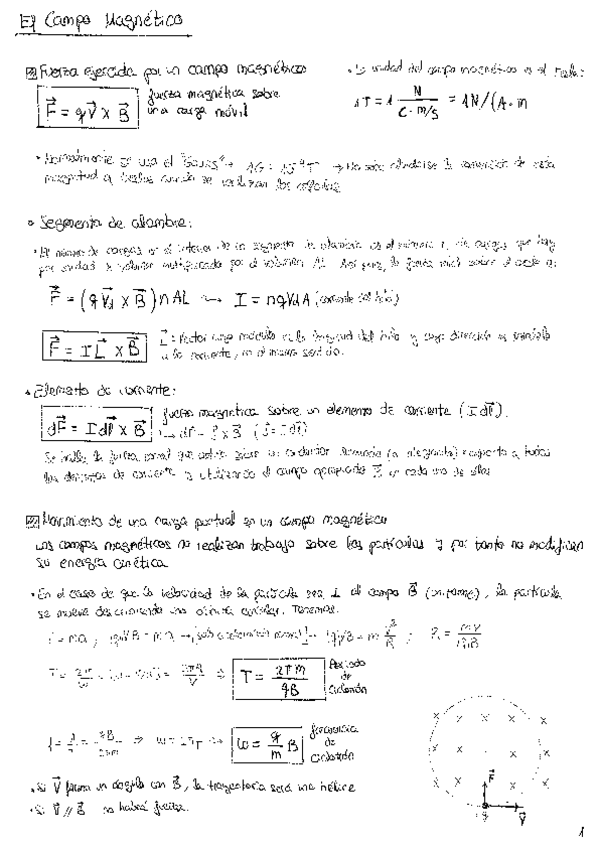 El Campo Magnético
Fuerza ejercida por un campo magnético
F = qV x B
fuerza magnética sobre
una carga móvil
• La unidad del campo magnético es el Tesla:
1T = 1 N / C · m/s = 1N/(A·m
• Normalmente se usa el "Gauss" → 1G = 10⁻⁴T →
magnitud a Teslas cuando se realizan los cálculos
• Segmento de alambre:
• El número de cargas en el interior de un segmento de alambre es el número n, de cargas que hay
por unidad de volumen multiplicada por el volumen AL. Así pues, la fuerza total sobre el
F = (q Vd x B) n AL → I = nqVdA (corriente del hilo)
F = I L x B
L: vector cuyo módulo es la longitud del hilo y cuya dirección es paralela
a la corriente, en el mismo sentido.
• Elemento de corriente:
dF = I dl x B
fuerza magnética sobre un elemento de corriente (I dl).
Se halla la fuerza total que actúa sobre un conductor sumando (o integrando) respecto a todos
los elementos de corriente y utilizando el campo apropiado B en cada uno de ellos
Movimiento de una carga puntual en un campo magnético
Los campos magnéticos no realizan trabajo sobre las partículas y por tanto no modifican
su energía cinética.
• En el caso de que la velocidad de la partícula sea ⊥ al campo B (uniforme), la partícula
se mueve describiendo una órbita circular. Tenemos:
F = ma; qVB = ma → (solo aceleración normal) → qVB = m V²/R ; R = mV/qB
T = 2πm / qB
Periodo
de
Ciclotrón
ω = q/m B
frecuencia
de
Ciclotrón
• Si V forma un ángulo con B, la trayectoria será una hélice
• Si V // B no habrá fuerza.
x x x x
x x x x
x x x x
F
q
V
1